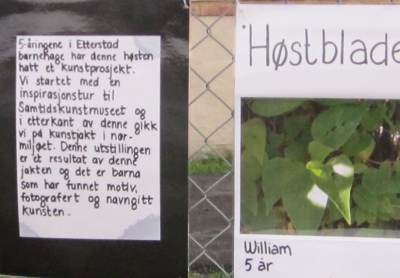 5-åringene i Etterstad
barnehage har denne høsten
hatt et kunstprosjekt.
Vi startet med en
inspirasjonstur til
Samtidskunstmuseet og
i etterkant av denne gikk
vi på kunstjakt i nær-
miljøet. Denne utstillingen
er et resultat av denne
jakten og det er barna
som har funnet motiv,
fotografert og navngitt
kunsten.
Høstblade
William
5 år